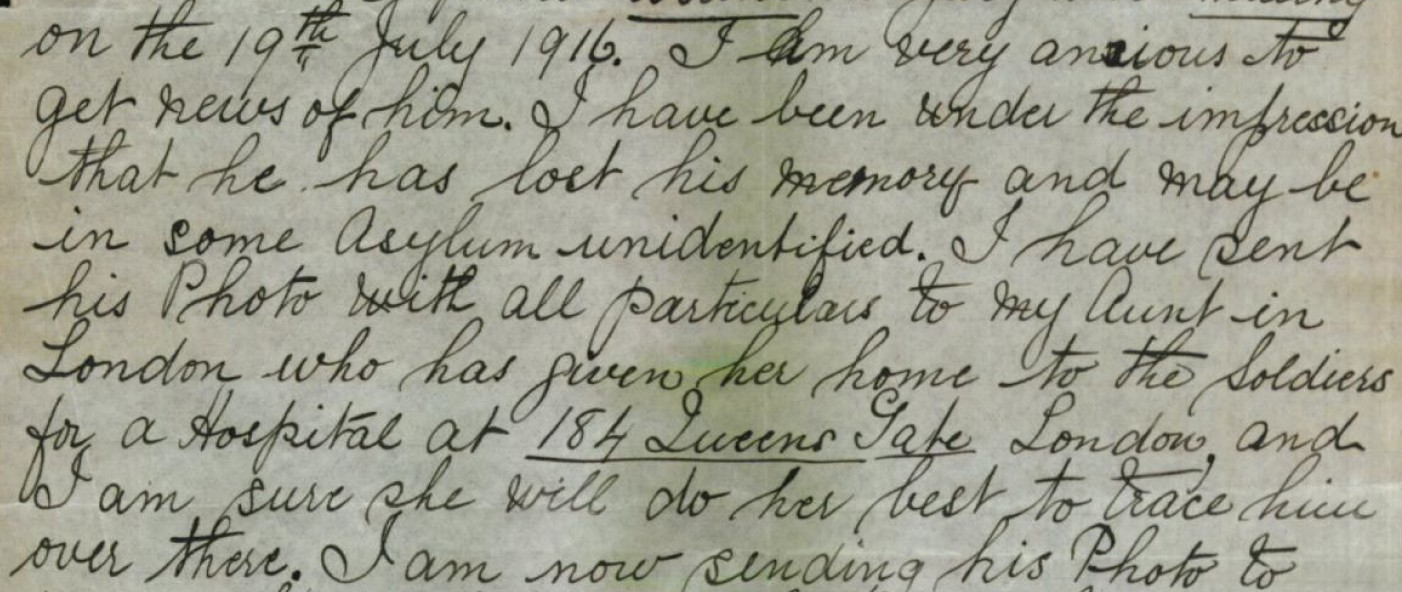 on the 19th July 1916. I am very anxious to
get news of him. I have been under the impression
that he has lost his memory and may be
in some Asylum unidentified. I have sent
his Photo with all particulars to my Aunt in
London who has given her home to the Soldiers
for a Hospital at 184 Queens Gate London, and
I am sure she will do her best to trace him
over there. I am now sending his Photo to